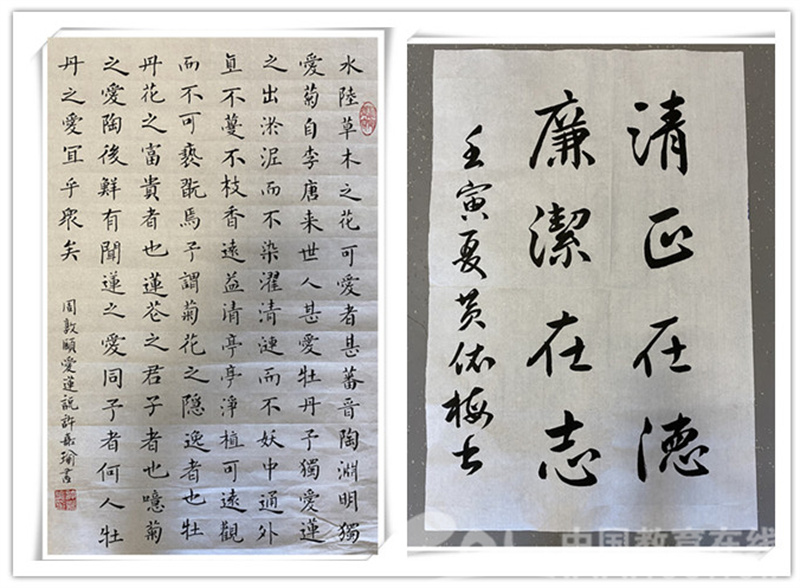 水陸草木之花可愛者甚蕃晋陶淵明獨
愛菊自李唐来世人甚愛牡丹予獨愛蓮
之出淤泥而不染濯清漣而不妖中通外
直不蔓不枝香遠益清亭亭淨植可遠觀
而不可褻翫焉予謂菊花之隱逸者也牡
丹花之富貴者也蓮花之君子者也噫菊
之愛陶後鮮有聞蓮之愛同予者何人牡
丹之愛宜乎衆矣
周敦頤愛蓮説許瑜書
清正在德
廉潔在志
壬寅夏黄依梅书
中国教育在线